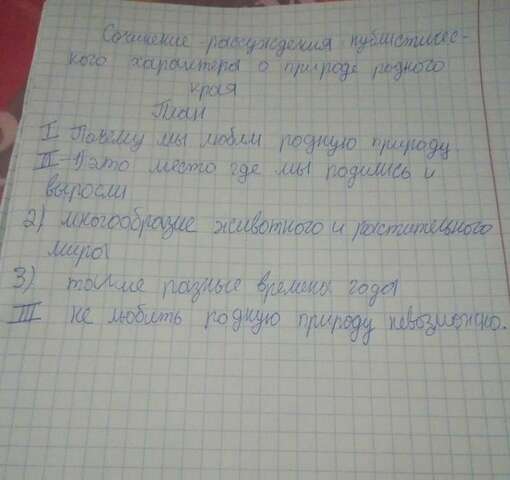 Сочинение-рассуждения публистичес-
кого характера о природе родного
края
План
I Почему мы любим родную природу
II-1) это место где мы родились и
выросли
2) многообразие животного и растительного
мира
3) разные времена года
III не любить родную природу невозможно.